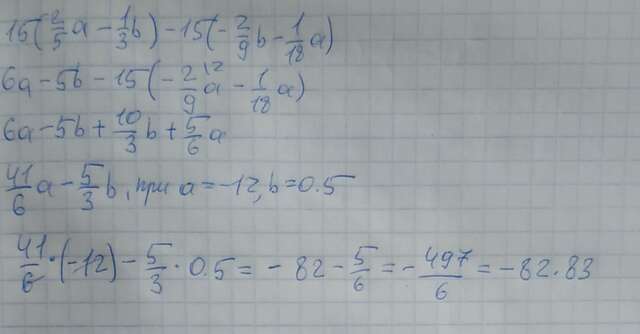 15(2/5a - 1/3b) - 15(-2/9b - 1/18a)
6a - 5b - 15(-2/9a - 1/18a)
6a - 5b + 10/3b + 5/6a
41/6a - 5/3b, при a = -12, b = 0.5
41/6 · (-12) - 5/3 · 0.5 = -82 - 5/6 = -497/6 = -82.83